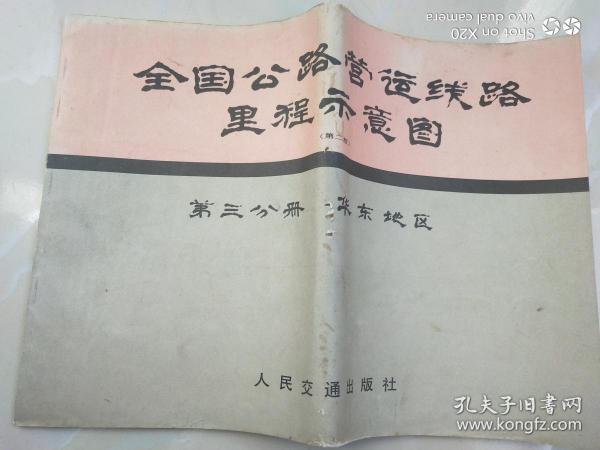 Shot on X20
vivo dual camera
全国公路营运线路
里程示意图
（第二版）
第三分册 华东地区
人民交通出版社
孔夫子旧书网
kongfz.com